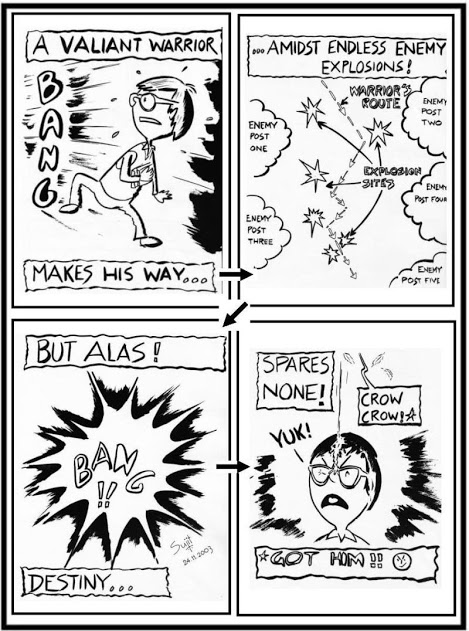 A VALIANT WARRIOR
BANG
MAKES HIS WAY...
...AMIDST ENDLESS ENEMY
EXPLOSIONS!
WARRIOR'S
ROUTE
ENEMY
POST
ONE
ENEMY
POST
TWO
EXPLOSION
SITES
ENEMY
POST FOUR
ENEMY
POST
THREE
ENEMY
POST FIVE
BUT ALAS!
BANG
!!
Sujit
24.11.2003
DESTINY...
SPARES
NONE!
CROW
CROW!☆
YUK!
☆GOT HIM!!